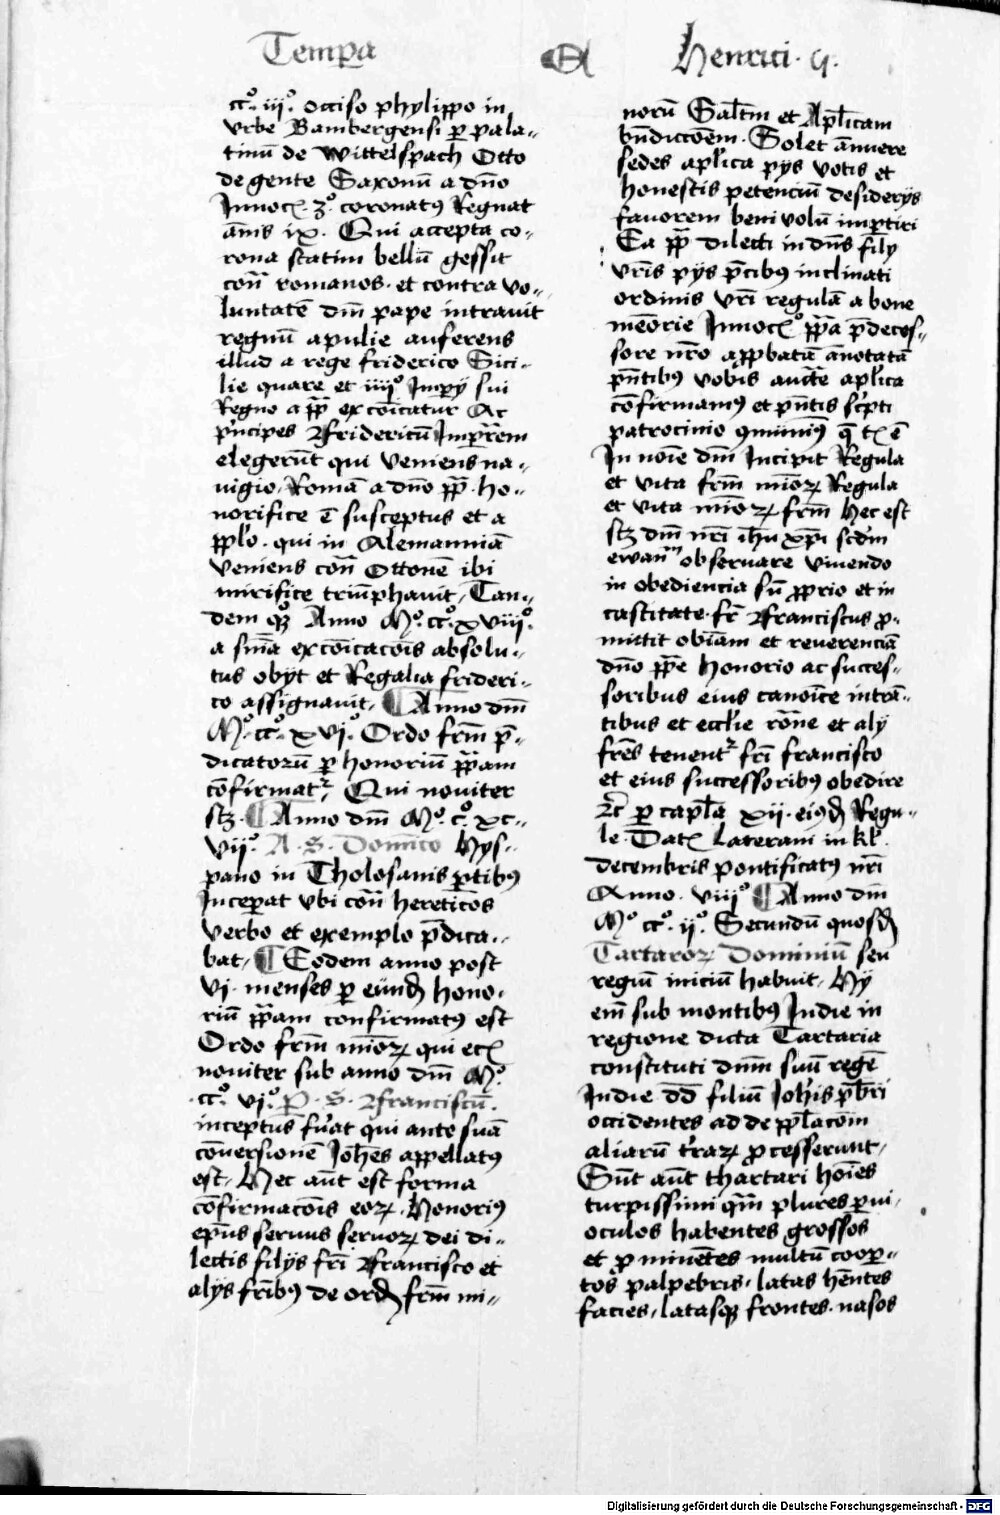 Tempa
Henrici · q ·
cc°· iij° occiso phylippo in
vrbe Bambergensi ꝑ pala-
tinū de Wittelspach Otto
de gente Saxonū a dn̄o
Innoc̄ 3° coronatꝰ Regnat
ān̄is ix. Qui accepta co-
rona statim bellū gessit
con̄ romanos · et contra vo-
luntatē dn̄i pape intrauit
regnū apulie auferens
illud a rege friderico Sici-
lie quare et iiij° Impij sui
Regno a pp̄ exco͞icatur Ac
pͥncipes Fridericū Impr̄em
elegerūt qui veniens na-
uigio · Romā a dn̄o pp̄ · ho-
norifice ē susceptus et a
pplo · qui in Alemanniā
veniens con̄ Ottonē ibi
mirifice triūphauit · Tan-
dem qꝫ Anno M° · cc° · xviij°
a sn̄ia exco͞icacōis absolu-
tus obijt et Regalia frideri-
co assignauit · ¶ Anno dn̄i
M° · cc° · xvj° · Ordo frm̄ p̄-
dicatorū ꝑ honoriū pp̄am
cōfirmatᷣ · Qui nouiter
scꝫ · ¶ Anno dn̄i M° · c° · xc-
vij° · A · S · Dom̄ico Hys-
pano in Tholosanis ꝑtibꝰ
Inceꝑat vbi con̄ hereticos
verbo et exemplo p̄dica-
bat · ¶ Eodem anno post
vj · menses ꝑ eūnd̄ hono-
riū pp̄am confirmatꝰ est
Ordo frm̄ mīoꝝ qui ec̄
nouiter sub anno dn̄i M°
· cc° · vj° · P · S · Franciscū ·
inceptus fu͛at qui ante suā
cōuersionē Joh̄es appellatꝰ
est · Hec aūt est forma
cōfirmacōis eoꝝ · Honorius
ep̄us seruus seruoꝝ dei di-
lectis filijs fr̄i Francisco et
alijs fr̄ibꝰ de ord̄ frm̄ mi-
norū Sal̄tm et Apl̄icam
bn̄diccōem · Solet ānuere
sedes apl̄ica pijs votis et
honestis petenciū desiderijs
fauorem beniuolū imꝑtiri
Ea pp̄ dilecti in dn̄o filij
vr̄is pijs p̄cibꝰ inclinati
ordinis vr̄i regulā a bone
memorie Innoc̄° pp̄a p̄deces-
sore nr̄o app̄batā ānotatā
pn̄tibꝰ vobis auct̄e apl̄ica
cōfirmamꝰ et pn̄tis scͥpti
patrocinio ꝯmunimꝰ q̄ t̄ ē
In noīe dn̄i Incipit Regula
et vita frm̄ mīoꝝ Regula
et vita mīoꝝ frm̄ hec est
scꝫ dn̄i nr̄i ih̄u xp̄i scd̄m
ewan̄ obseruare viuendo
in obediencia sn̄ ꝓprio et in
castitate · fr̄ Franciscus ꝓ-
mittit obīam et reuerenciā
dn̄o pp̄e honorio ac succes-
soribus eius canoīce intrā-
tibus et eccl̄ie rōne et alij
fr̄es tenentᷣ fr̄i francisco
et eius successoribꝰ obedire
⁊c̄ ꝑ capl̄a xij · eiꝰd̄ Regu-
le · Dat̄ Laterani in kl̄
decembris pontificatꝰ nr̄i
Anno · viij° ¶ Anno dn̄i
M° cc° · ij° · Secundū quosd̄
Tartaroꝝ Dominiū seu
regnū iniciū habuit · Hij
em̄ sub montibꝰ Indie in
regione dicta Tartaria
constituti dn̄m suū regē
Indie dd̄ filiū Joh̄is pr̄bri
occidentes ad depp̄lacōem
aliarū tr̄aꝝ ꝓcesserunt ·
Sūt aūt thartari hoīes
turpissimi qm̄ plures ꝑui
oculos habentes grossos
et ꝓminētes multū cooꝑ-
tos palpebris · latas hn̄tes
facies · latasqꝫ frontes · nasos
Digitalisierung gefördert durch die Deutsche Forschungsgemeinschaft - DFG